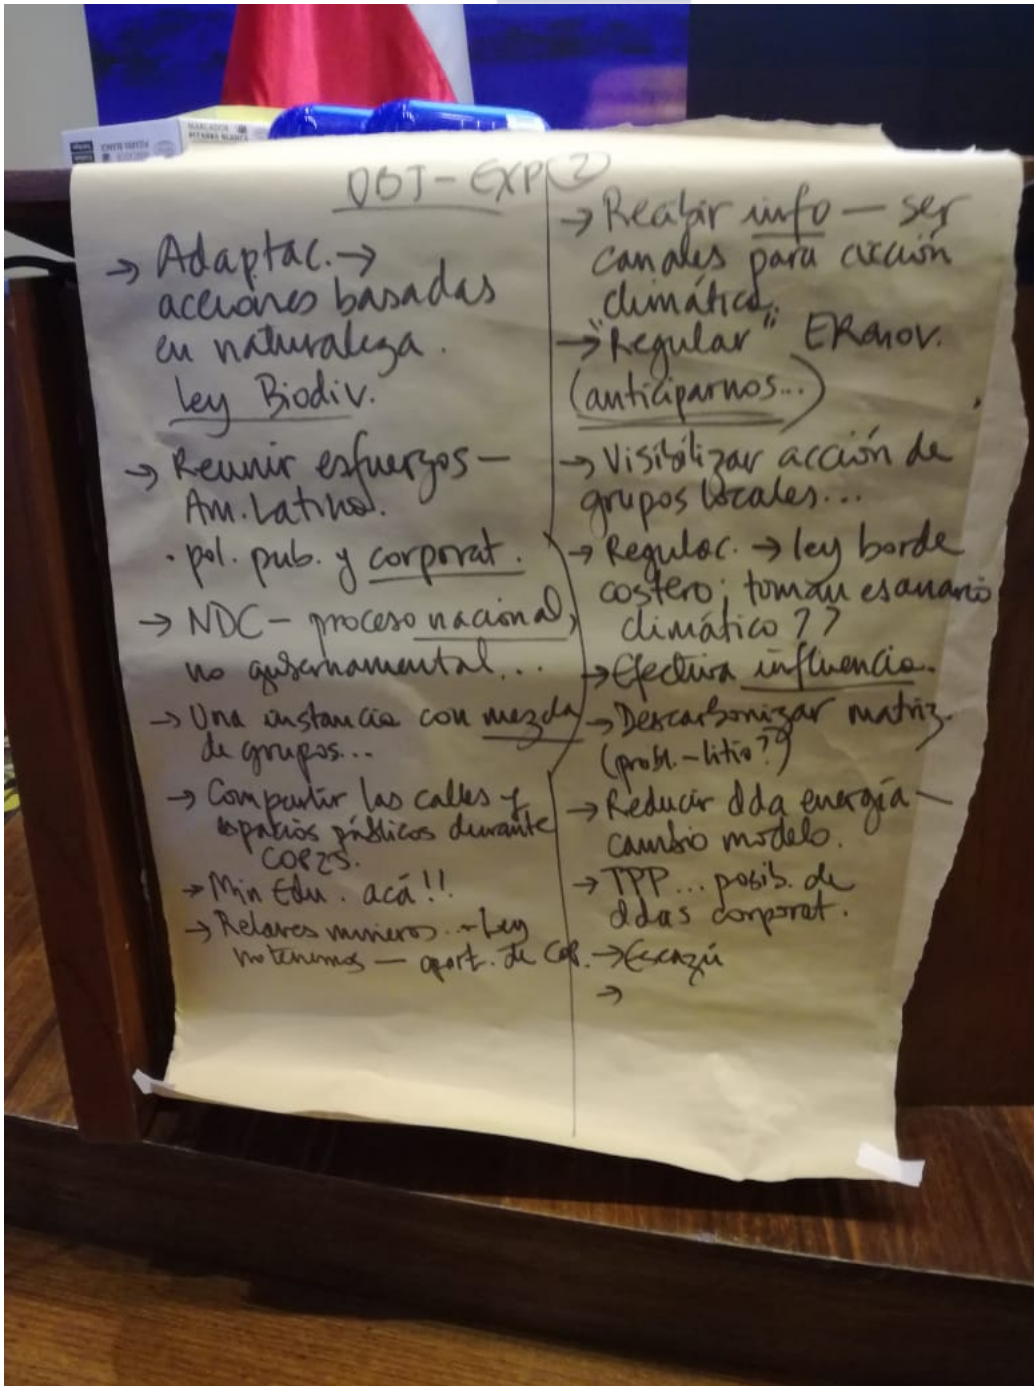 MARCADOR
PIZARRA BLANCA
OBJ - EXP 2
→ Adaptac. →
acciones basadas
en naturaleza.
Ley Biodiv.
→ Reunir esfuerzos —
Am. Latina.
· pol. pub. y corporat.
→ NDC - proceso nacional,
no gubernamental...
→ Una instancia con mezcla
de grupos...
→ Compartir las calles y
espacios públicos durante
COP25.
→ Min Edu. acá!!
→ Relaves mineros. - Ley
no tenemos — oport. de COP.
→ Recibir info — ser
canales para acción
climática.
→ "Regular" ERenov.
(anticiparnos...)
→ Visibilizar acción de
grupos locales...
→ Regulac. → ley borde
costero; toman escenario
climático??
→ Efectiva influencia.
→ Descarbonizar matriz.
(probl. - litio?)
→ Reducir dda energía —
cambio modelo.
→ TPP... posib. de
ddas corporat.
→ Escazú
→